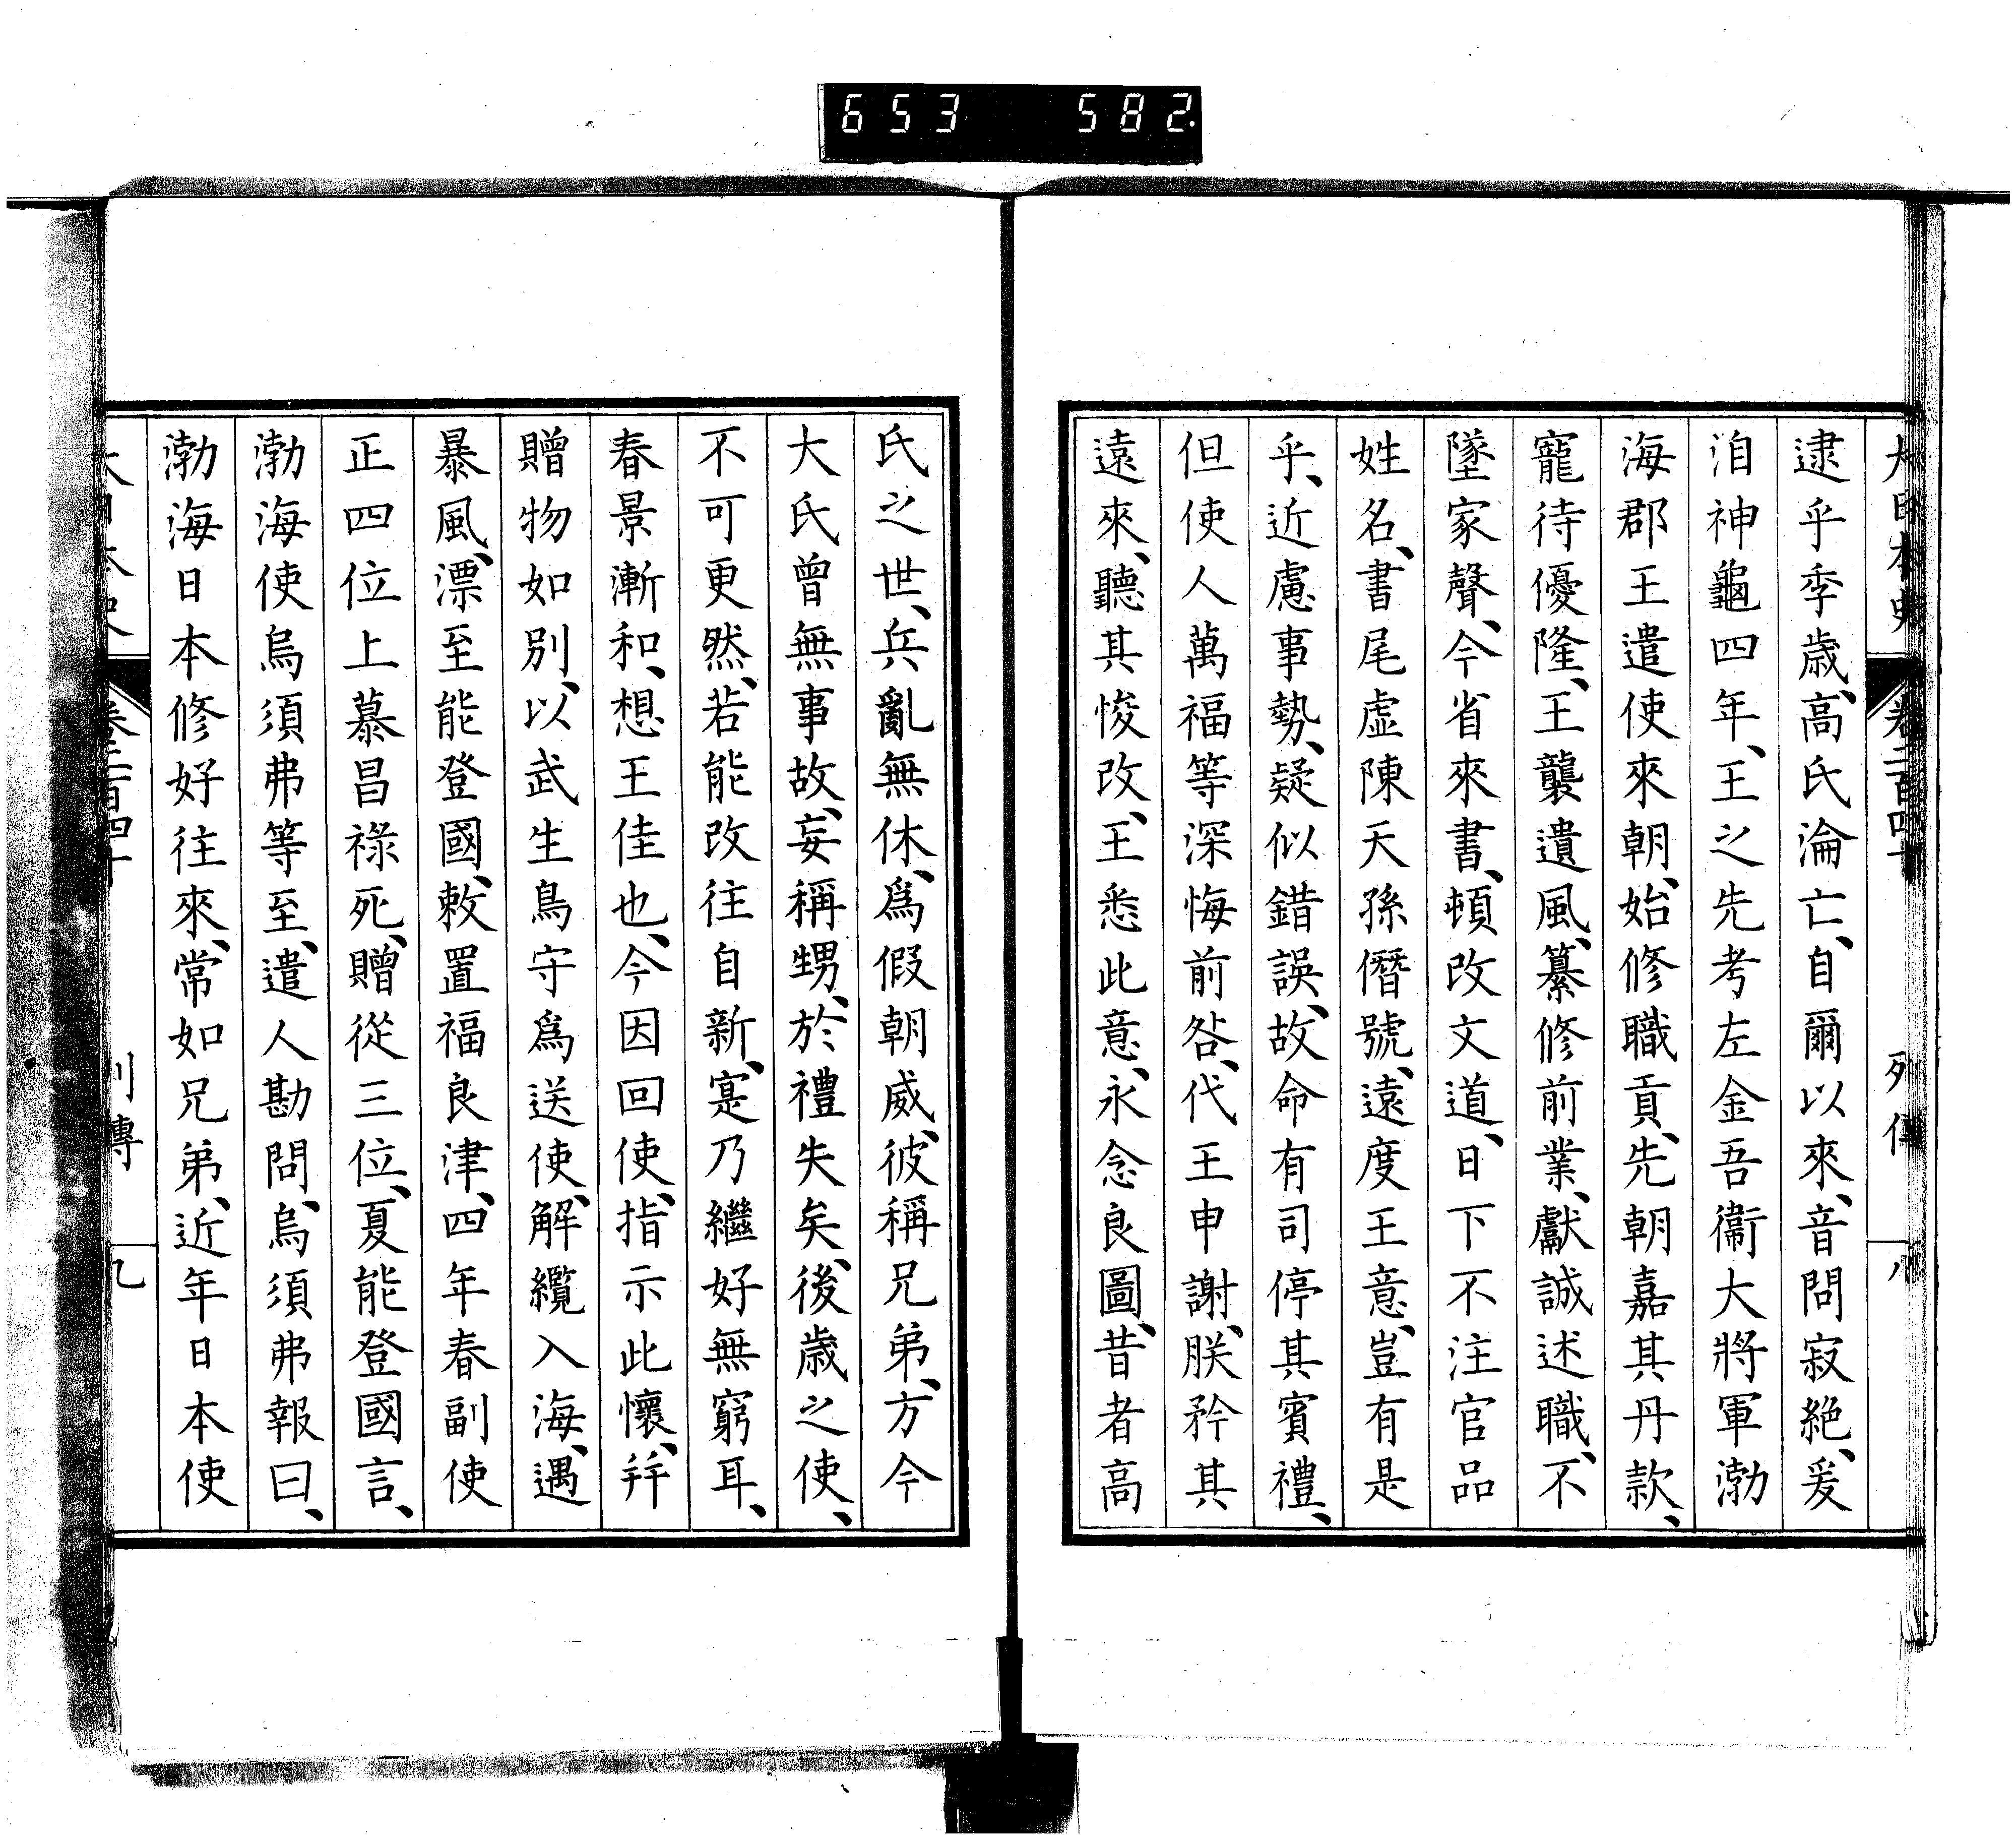 653 582.
大日本史 卷二百四十 列傳 八
逮乎季歲、高氏淪亡、自爾以來、音問寂絶、爰
洎神龜四年、王之先考左金吾衞大將軍渤
海郡王遣使來朝、始修職貢、先朝嘉其丹款、
寵待優隆、王襲遺風、纂修前業、獻誠述職、不
墜家聲、今省來書、頓改文道、日下不注官品
姓名、書尾虛陳天孫僭號、遠度王意、豈有是
乎、近慮事勢、疑似錯誤、故命有司停其賓禮、
但使人萬福等深悔前咎、代王申謝、朕矜其
遠來、聽其悛改、王悉此意、永念良圖、昔者高
氏之世、兵亂無休、爲假朝威、彼稱兄弟、方今
大氏曾無事故、妄稱甥、於禮失矣、後歲之使、
不可更然、若能改往自新、寔乃繼好無窮耳、
春景漸和、想王佳也、今因回使、指示此懷、幷
贈物如別、以武生鳥守爲送使、解纜入海、遇
暴風、漂至能登國、敕置福良津、四年春副使
正四位上慕昌祿死、贈從三位、夏能登國言、
渤海使烏須弗等至、遣人勘問、烏須弗報曰、
渤海日本修好往來、常如兄弟、近年日本使
大日本史 卷二百四十 列傳 九